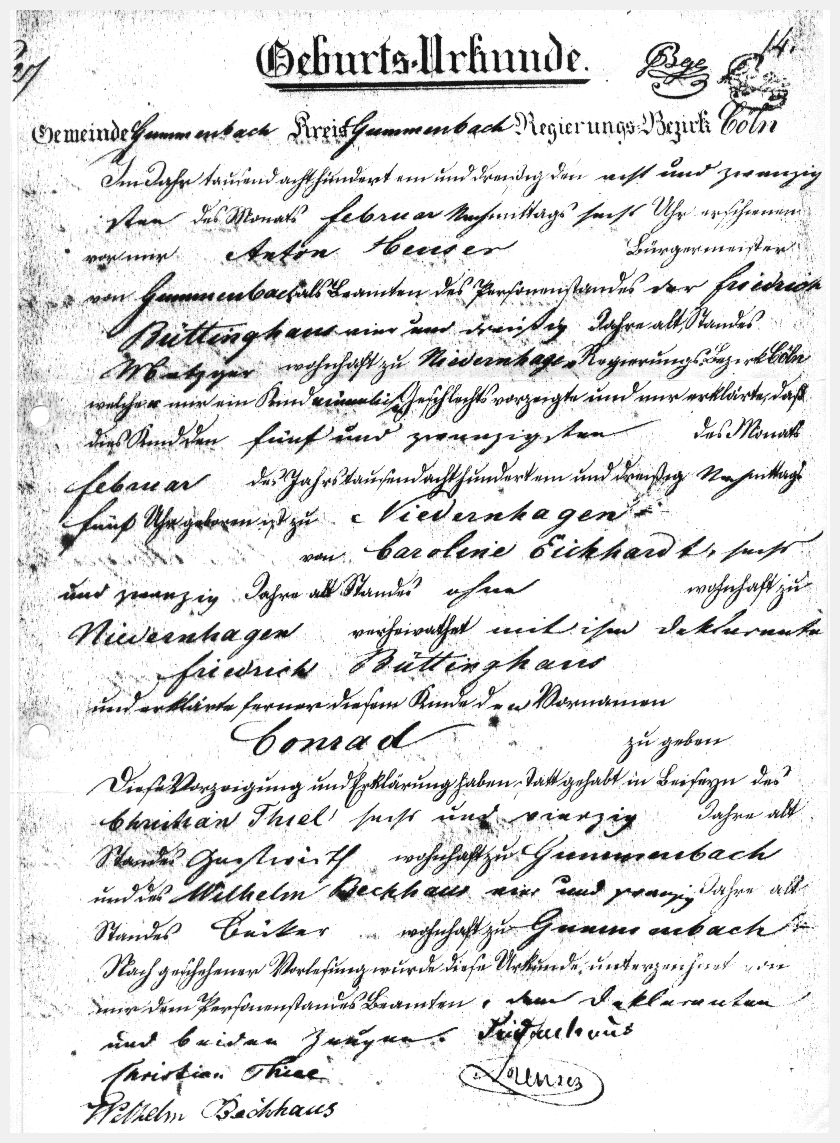 14.
27
Geburts-Urkunde.
Gemeinde Gummersbach Kreis Gummersbach Regierungs-Bezirk Cöln
Im Jahr tausend achthundert ein und dreißig den acht und zwanzig
sten des Monats Februar Nachmittags sechs Uhr erschienen
vor mir Anton Heuser Bürgermeister
von Gummersbach als Beamten des Personenstandes der Friedrich
Büttinghaus vier und dreißig Jahre alt, Standes
Metzger wohnhaft zu Niedernhagen Regierungs-Bezirk Cöln
welcher mir ein Kind männlichen Geschlechts vorzeigte und mir erklärte, daß
dies Kind den fünf und zwanzigsten des Monats
Februar des Jahrs tausend achthundert ein und dreißig Nachmittags
fünf Uhr geboren ist zu Niedernhagen
von Caroline Eickhardt, sechs
und zwanzig Jahre alt Standes ohne wohnhaft zu
Niedernhagen verheirathet mit ihm Deklarante
Friedrich Büttinghaus
und erklärte ferner diesem Kinde den Vornamen
Conrad zu geben
Diese Vorzeigung und Erklärung haben statt gehabt in Beiseyn des
Christian Thiel sechs und vierzig Jahre alt
Standes Gastwirth wohnhaft zu Gummersbach
und des Wilhelm Beckhaus vier und zwanzig Jahre alt
Standes Bäcker wohnhaft zu Gummersbach
Nach geschehener Vorlesung wurde diese Urkunde unterzeichnet von
mir dem Personenstandes Beamten, dem Deklaranten
und beiden Zeugen.
Christian Thiel
Wilhelm Beckhaus